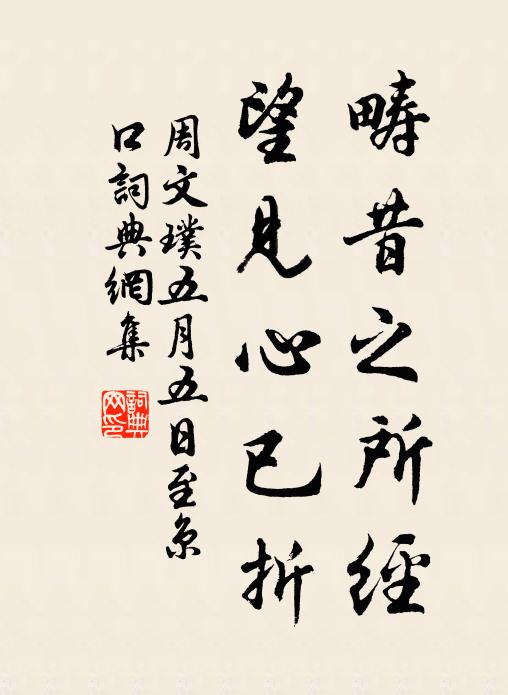 疇昔之所經
望見心已折
周文璞五月五日至京
口詞典網集
詞典
网印